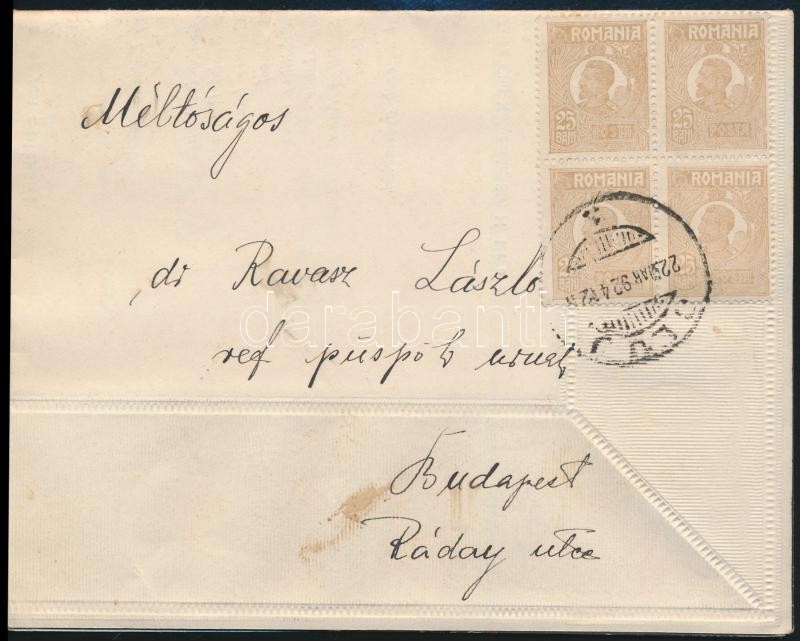 ROMANIA ROMANIA
25 BANI POSTA 25 BANI POSTA
ROMANIA ROMANIA
25 BANI POSTA
Méltóságos
dr Ravasz László
ref püspök urnak
Budapest
Ráday utca
darabanth